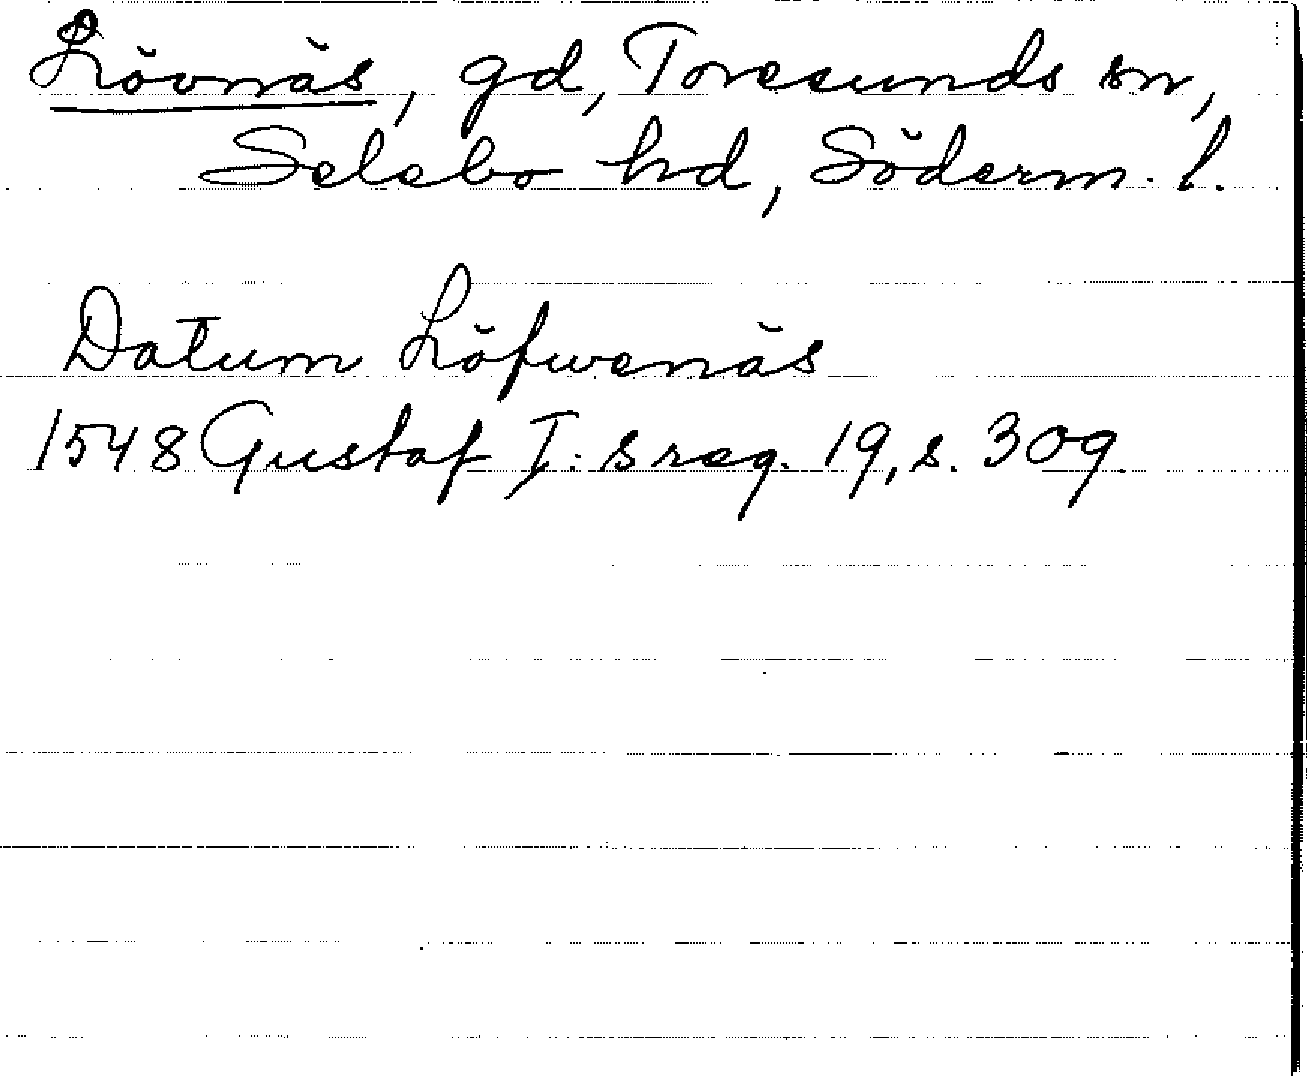 Lövnäs, gd, Toresunds sn,
Selebo hd, Söderm. l.
Datum Löfwenäs
1548 Gustaf I:s reg. 19, s. 309.